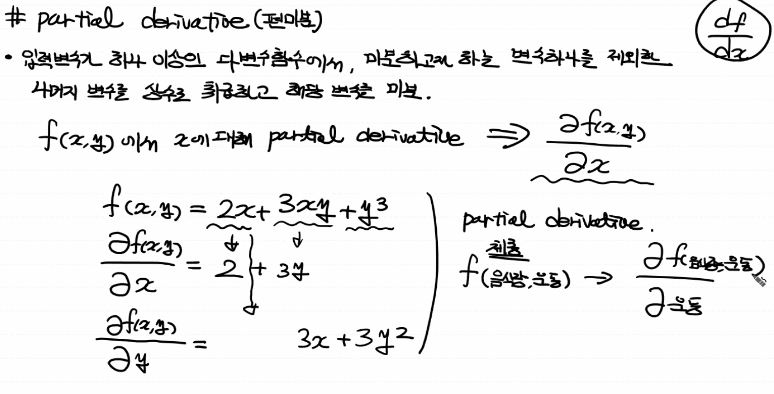 # partial derivative (편미분)
df
dx
• 입력변수가 하나 이상의 다변수함수에서, 미분하고자 하는 변수하나를 제외한
나머지 변수를 상수로 취급하고 해당 변수를 미분.
f(x,y) 에서 x에 대해 partial derivative ⇒ ∂f(x,y)
∂x
f(x,y) = 2x + 3xy + y³
∂f(x,y)
∂x = 2 + 3y
∂f(x,y)
∂y = 3x + 3y²
partial derivative.
체중
f(음식량, 운동) → ∂f(음식량, 운동)
∂운동